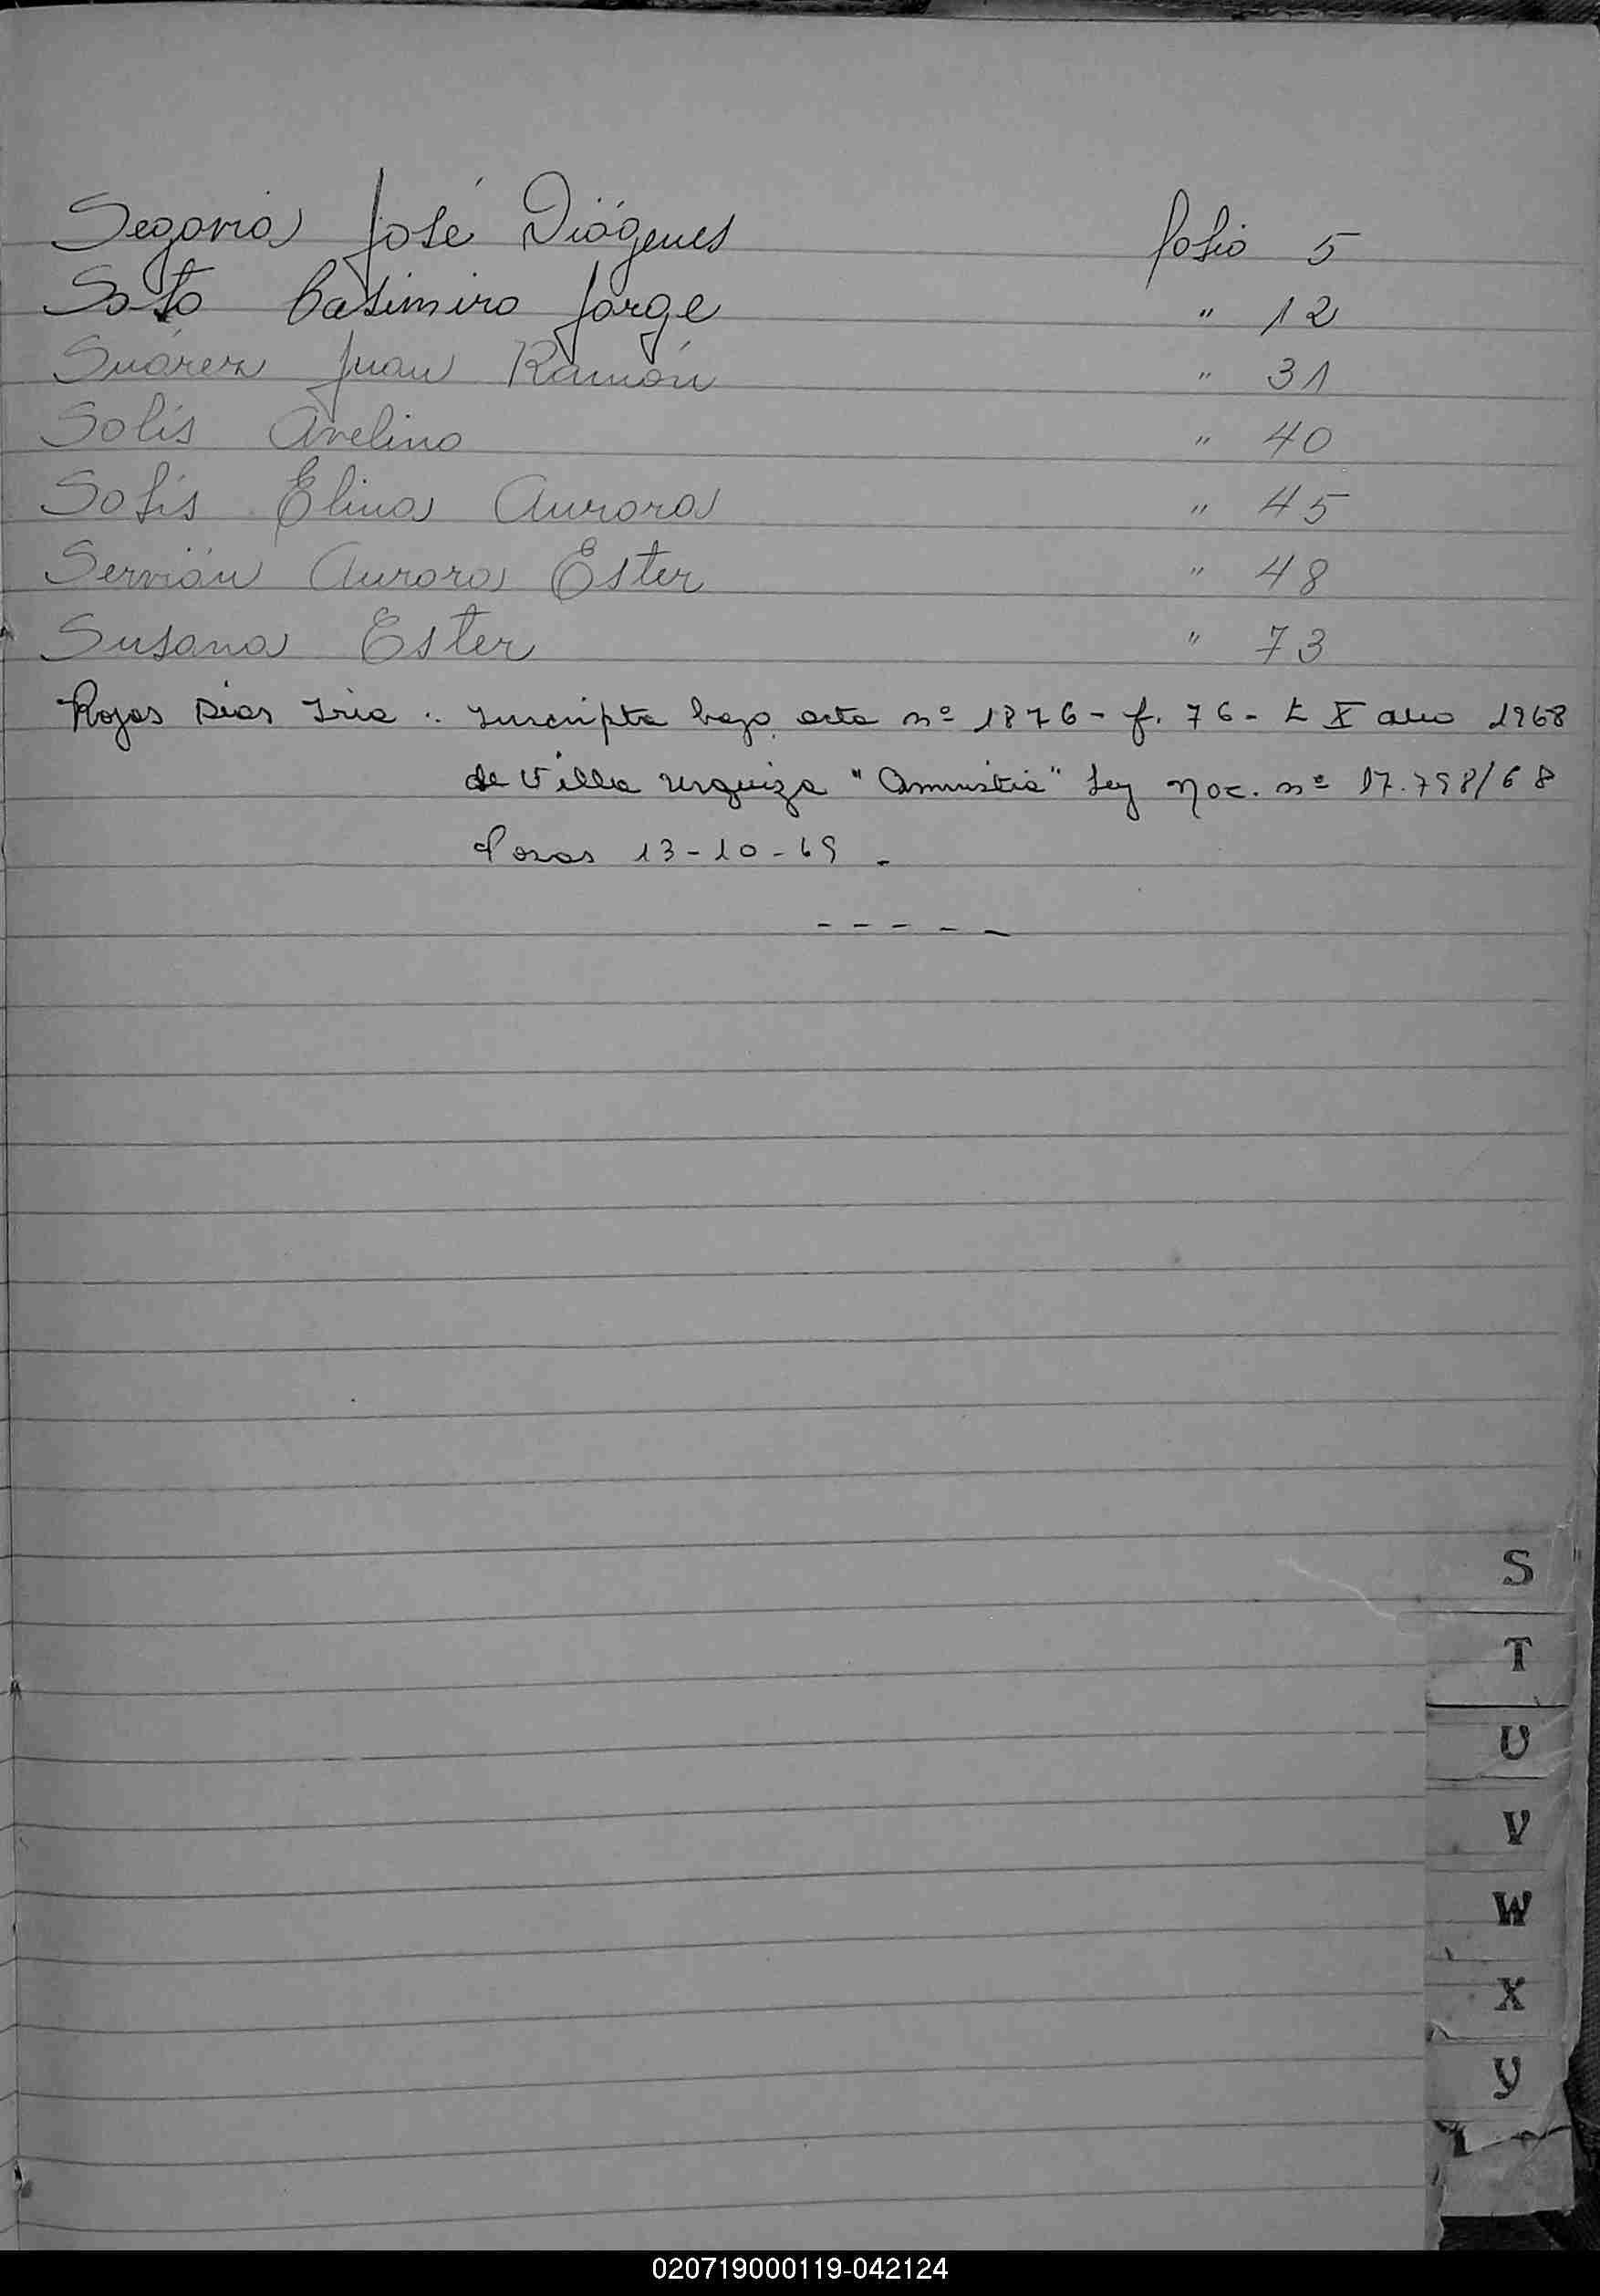 Segovia José Diógenes folio 5
Soto Casimiro Jorge " 12
Suárez Juan Ramón " 31
Solís Avelino " 40
Solís Elina Aurora " 45
Servián Aurora Ester " 48
Susana Ester " 73
Rojas Días Iria : Inscripta bajo acta nº 1876 - f. 76 - t X año 1968
de Villa Urquiza "Amnistia" Ley Nac. nº 17.798/68
Posas 13-10-69 -
- - - - -
S
T
U
V
W
X
Y
020719000119-042124